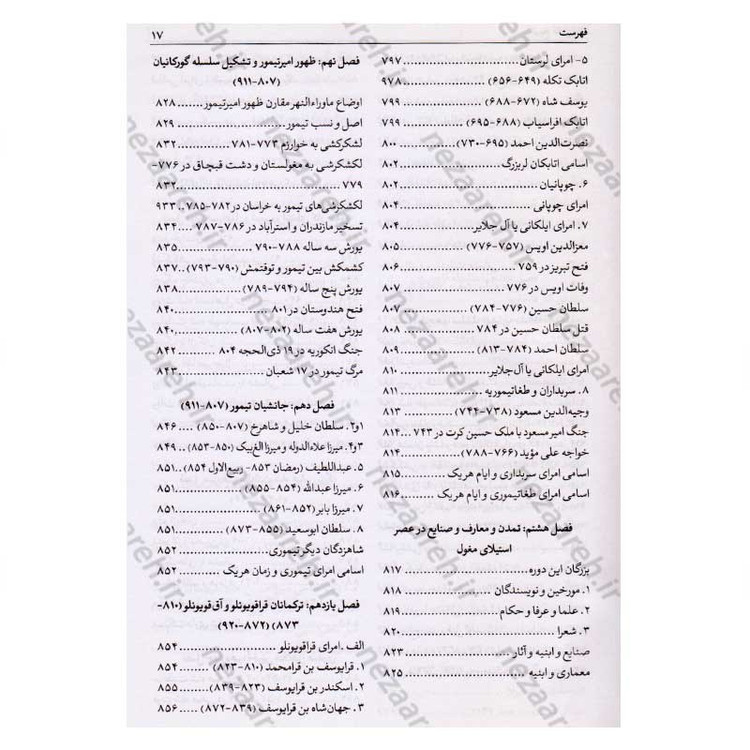 فهرست
۱۷
۵- امرای لرستان .......... ۷۹۷
اتابک تکله (۶۴۹-۶۵۶) .......... ۹۷۸
یوسف شاه (۶۷۲-۶۸۸) .......... ۷۹۹
اتابک افراسیاب (۶۸۸-۶۹۵) .......... ۷۹۹
نصرت‌الدین احمد (۶۹۵-۷۳۰) .......... ۸۰۰
اسامی اتابکان لربزرگ .......... ۸۰۲
۶. چوپانیان .......... ۸۰۲
امرای چوپانی .......... ۸۰۴
۷. امرای ایلکانی یا آل جلایر .......... ۸۰۴
معزالدین اویس (۷۵۷-۷۷۶) .......... ۸۰۵
فتح تبریز در ۷۵۹ .......... ۸۰۶
وفات اویس در ۷۷۶ .......... ۸۰۷
سلطان حسین (۷۷۶-۷۸۴) .......... ۸۰۷
قتل سلطان حسین در ۷۸۴ .......... ۸۰۸
سلطان احمد (۷۸۴-۸۱۳) .......... ۸۰۹
امرای ایلکانی یا آل‌جلایر .......... ۸۱۰
۸. سربداران و طغاتیموریه .......... ۸۱۱
وجیه‌الدین مسعود (۷۳۸-۷۴۴) .......... ۸۱۳
جنگ امیر مسعود با ملک حسین کرت در ۷۴۳ ... ۸۱۴
خواجه علی مؤید (۷۶۶-۷۸۸) .......... ۸۱۴
اسامی امرای سربداری و ایام هریک .......... ۸۱۵
اسامی امرای طغاتیموری و ایام هریک .......... ۸۱۶
فصل هشتم: تمدن و معارف و صنایع در عصر
استیلای مغول
بزرگان این دوره .......... ۸۱۷
۱. مورخین و نویسندگان .......... ۸۱۸
۲. علما و عرفا و حکام .......... ۸۱۹
۳. شعرا .......... ۸۲۰
صنایع و ابنیه و آثار .......... ۸۲۳
معماری و ابنیه .......... ۸۲۵
فصل نهم: ظهور امیرتیمور و تشکیل سلسله گورکانیان
(۸۰۷-۹۱۱)
اوضاع ماوراءالنهر مقارن ظهور امیرتیمور ....... ۸۲۸
اصل و نسب تیمور .......... ۸۲۹
لشکرکشی به خوارزم ۷۷۳-۷۸۱ .......... ۸۳۲
لکشکرکشی به مغولستان و دشت قبچاق در ۷۷۶-
۷۷۹ .......... ۸۳۲
لکشکرکشی‌های تیمور به خراسان در ۷۸۲-۷۸۵ .. ۹۳۳
تسخیر مازندران و استرآباد در ۷۸۶-۷۸۷ .... ۸۳۴
یورش سه ساله ۷۸۸-۷۹۰ .......... ۸۳۵
کشمکش بین تیمور و توقتمش (۷۹۰-۷۹۳) .. ۸۳۷
یورش پنج ساله (۷۹۴-۷۸۹) .......... ۸۳۸
فتح هندوستان در ۸۰۱ .......... ۸۴۰
یورش هفت ساله (۸۰۲-۸۰۷) .......... ۸۴۰
جنگ انکوریه در ۱۹ ذی‌الحجه ۸۰۴ .......... ۸۴۲
مرگ تیمور در ۱۷ شعبان .......... ۸۴۳
فصل دهم: جانشیان تیمور (۸۰۷-۹۱۱)
۱و۲. سلطان خلیل و شاهرخ (۸۰۷-۸۵۰) .... ۸۴۶
۳و۴. میرزا علاءالدوله و میرزا الغ‌بیک (۸۵۰-۸۵۳) .. ۸۴۹
۵. عبداللطیف (رمضان ۸۵۳- ربیع‌الاول ۸۵۴) .. ۸۵۱
۶. میرزا عبدالله (۸۵۴-۸۵۵) .......... ۸۵۱
۷. میرزا بابر (۸۵۲-۸۶۱) .......... ۸۵۱
۸. سلطان ابوسعید (۸۵۵-۸۷۳) .......... ۸۵۱
شاهزدگان دیگر تیموری .......... ۸۵۲
اسامی امرای تیموری و زمان هریک .......... ۸۵۲
فصل یازدهم: ترکمانان قراقویونلو و آق قویونلو (۸۱۰-
۸۷۳) (۸۷۲-۹۲۰)
الف. امرای قراقویونلو .......... ۸۵۴
۱. قرایوسف بن قرامحمد (۸۱۰-۸۲۳) ....... ۸۵۴
۲. اسکندر بن قرایوسف (۸۲۳-۸۳۹) ....... ۸۵۵
۳. جهان‌شاه بن قرایوسف (۸۳۹-۸۷۲) ....... ۸۵۶
nezaareh.ir